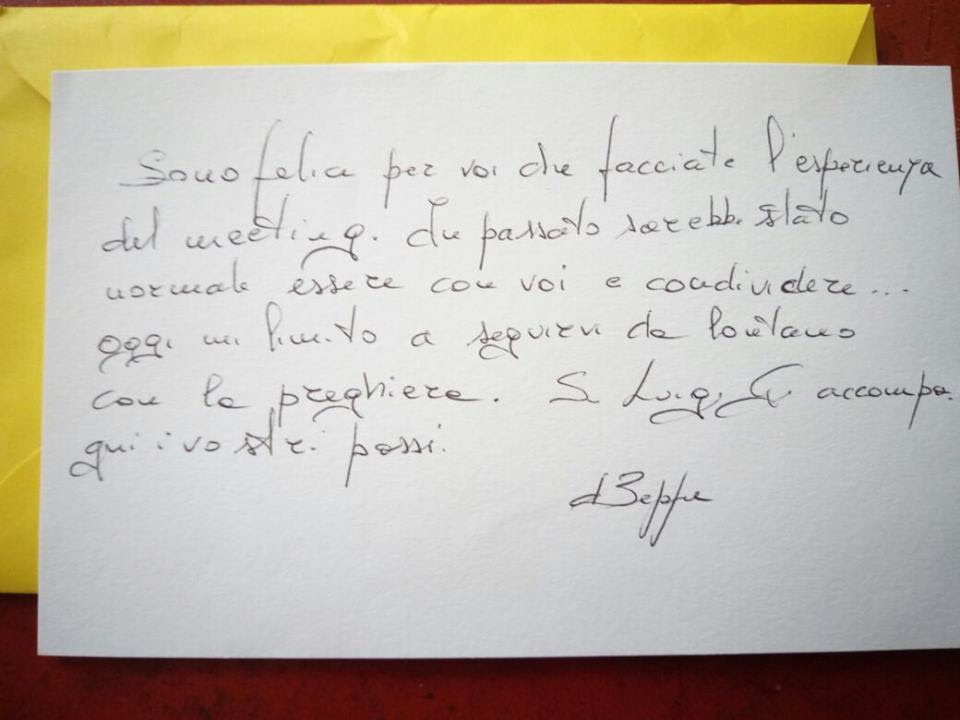 Sono felice per voi che facciate l'esperienza
del meeting. In passato sarebbe stato
normale essere con voi e condividere...
oggi mi limito a seguirvi da lontano
con la preghiera. S. Luigi G. accompa.
gni i vostri passi.
d Beppe